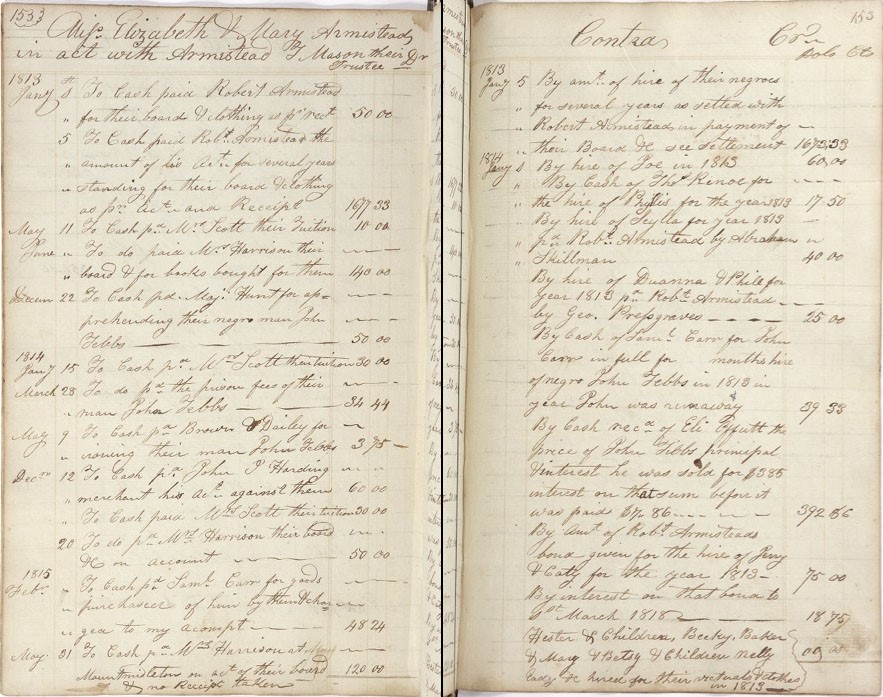 153
Miss Elizabeth & Mary Armistead
in act with Armistead T Mason their Dr
Trustee
1813
Jany 8 To Cash paid Robert Armistead
" for their board & clothing as pr rect 50 00
5 To Cash paid Robt Armistead the
" amount of his Act for several years
" standing for their board & clothing
as pr Act and Receipt 1697 33
May 11 To Cash pd Mrs Scott their Tuition 10 00
June " To do paid Mrs Harrison their
" board & for books bought for them 140 00
Decem 22 To Cash pd Maj Hunt for ap=
prehending their negro man John
Tebbs 50 00
1814
Jany 15 To Cash pd Mrs Scott their tuition 30 00
March 28 To do pd the prison fees of their
" man John Tebbs 34 44
May 9 To Cash pd Brown & Dailey for
" ironing their man John Tebbs 3 75
Decm 12 To Cash pd John P Harding
" merchant his Act against them 60 00
" To Cash paid Mrs Scott their tuition 30 00
20 To do pd Mrs Harrison their board
&c on account 50 00
1815
Feby " To Cash pd Saml Carr for goods
" purchased of him by them & char
" ged to my account 48 24
May 31 To Cash pd Mrs Harrison at
Mount on act of their board 120 00
& no Receipt taken
153
Contra Cr
Dols Cts
1813
Jany 5 By amt of hire of their negroes
" for several years as settled with
" Robert Armistead in payment of
" their Board &c see Settlement 1673 33
1814
Jany 8 By hire of Joe in 1813 60 00
" By Cash of Thos Renoe for
" the hire of Phylis for the year 1813 17 50
By hire of Scylla for year 1813
" pr Robt Armistead by Abraham
" Skillman 40 00
By hire of Duanna & Phile for
year 1813 pr Robt Armistead
by Geo. Presgraves 25 00
By Cash of Saml Carr for John
Carr in full for months hire
of negro John Tebbs in 1813 in
year John was runaway 39 33
By Cash recd of Eli the
price of John Tebbs principal
& interest he was sold for $385
interest on that sum before it
was paid $7.86 392 86
By Amt of Robt Armisteads
bond given for the hire of Jeny
& Caty for the year 1813 75 00
By interest on that bond to
1st March 1818 18 75
Hester & Children, Becky, Baker
& Mary & Betsy & Children Nelly
&c hired for their victuals & clothes
in 1813 00 00